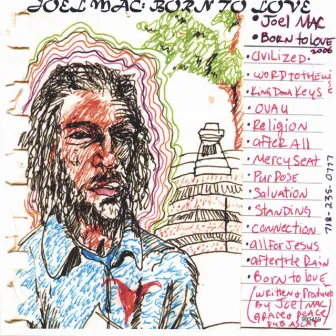 JOEL MAC: BORN TO LOVE
• Joel MAC
• Born to love
2006
• Civilized.
• WORD TO THE WI
• KingDom Keys
• OVAH
• Religion
• after All
• Mercy Seat
• PURPOSE
• Salvation
• Standing
• Connection
• All for Jesus
• After the Rain
• Born to love
(written & Produced
By Joel MAC
718-235-0777